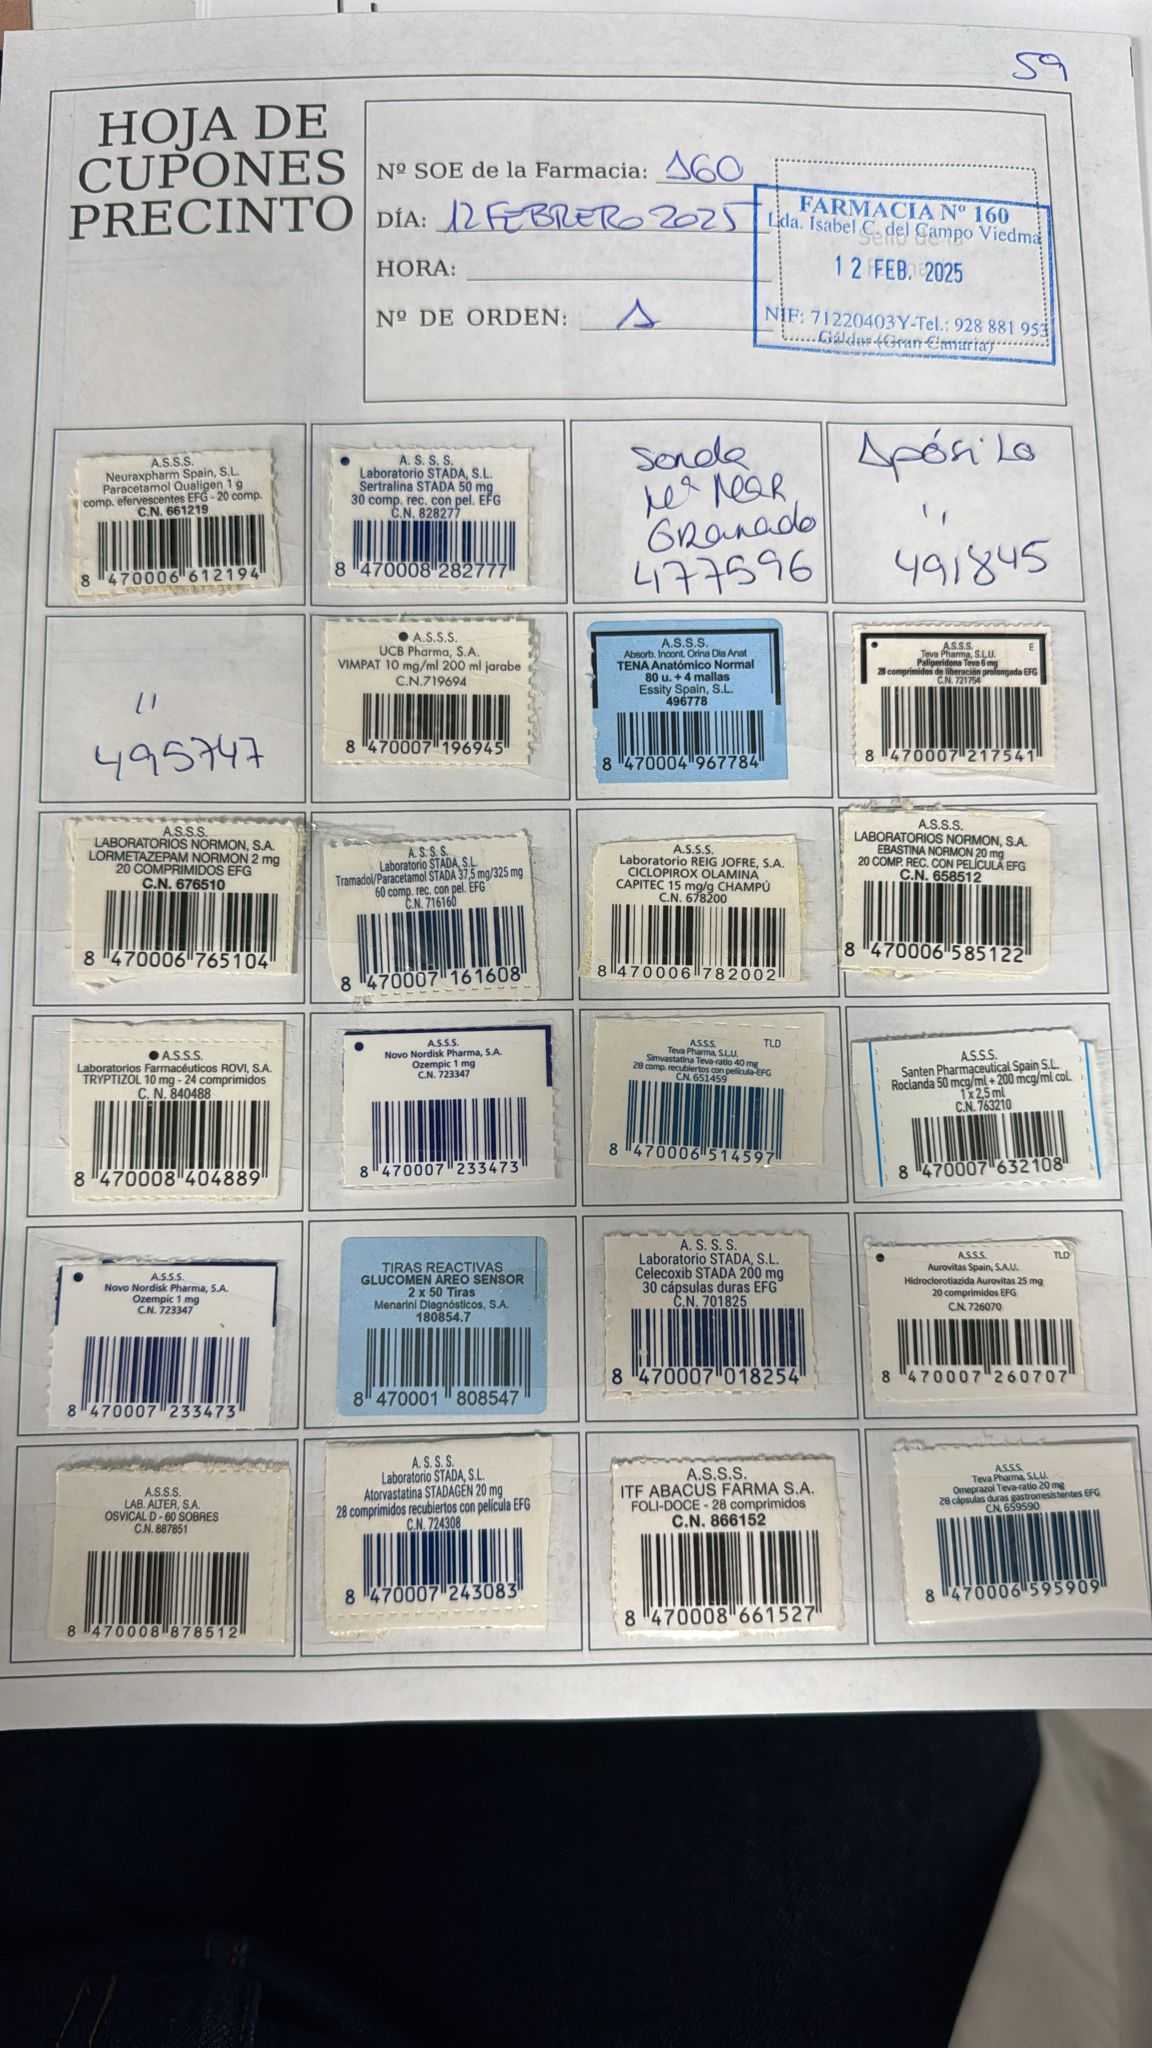 59
HOJA DE
CUPONES
PRECINTO
Nº SOE de la Farmacia: 160
DÍA: 12 FEBRERO 2025
HORA:
Nº DE ORDEN: 1
FARMACIA Nº 160
Lda. Isabel C. del Campo Viedma
12 FEB. 2025
NIF: 71220403Y-Tel.: 928 881 953
Gáldar (Gran Canaria)
A.S.S.S.
Neuraxpharm Spain, S.L.
Paracetamol Qualigen 1 g
comp. efervescentes EFG - 20 comp.
C.N. 661219
8 470006 612194
A. S. S. S.
Laboratorio STADA, S.L.
Sertralina STADA 50 mg
30 comp. rec. con pel. EFG
C.N. 828277
8 470008 282777
Sonda
Mª Mar
Granado
477596
Apósito
"
491845
"
495747
A.S.S.S.
UCB Pharma, S.A.
VIMPAT 10 mg/ml 200 ml jarabe
C.N.719694
8 470007 196945
A.S.S.S.
Absorb. Incont. Orina Dia Anat
TENA Anatómico Normal
80 u. + 4 mallas
Essity Spain, S.L.
496778
8 470004 967784
A.S.S.S. E
Teva Pharma, S.L.U.
Paliperidona Teva 6 mg
28 comprimidos de liberación prolongada EFG
C.N. 721754
8 470007 217541
A.S.S.S.
LABORATORIOS NORMON, S.A.
LORMETAZEPAM NORMON 2 mg
20 COMPRIMIDOS EFG
C.N. 676510
8 470006 765104
A. S. S. S.
Laboratorio STADA, S.L.
Tramadol/Paracetamol STADA 37,5 mg/325 mg
60 comp. rec. con pel. EFG
C.N. 716160
8 470007 161608
A.S.S.S.
Laboratorio REIG JOFRE, S.A.
CICLOPIROX OLAMINA
CAPITEC 15 mg/g CHAMPÚ
C.N. 678200
8 470006 782002
A.S.S.S.
LABORATORIOS NORMON, S.A.
EBASTINA NORMON 20 mg
20 COMP. REC. CON PELÍCULA EFG
C.N. 658512
8 470006 585122
A.S.S.S.
Laboratorios Farmacéuticos ROVI, S.A.
TRYPTIZOL 10 mg - 24 comprimidos
C. N. 840488
8 470008 404889
A.S.S.S.
Novo Nordisk Pharma, S.A.
Ozempic 1 mg
C.N. 723347
8 470007 233473
A.S.S.S. TLD
Teva Pharma, S.L.U.
Simvastatina Teva-ratio 40 mg
28 comp. recubiertos con película-EFG
C.N. 651459
8 470006 514597
A.S.S.S.
Santen Pharmaceutical Spain S.L.
Roclanda 50 mcg/ml + 200 mcg/ml col.
1 x 2,5 ml
C.N. 763210
8 470007 632108
A.S.S.S.
Novo Nordisk Pharma, S.A.
Ozempic 1 mg
C.N. 723347
8 470007 233473
TIRAS REACTIVAS
GLUCOMEN AREO SENSOR
2 x 50 Tiras
Menarini Diagnósticos, S.A.
180854.7
8 470001 808547
A. S. S. S.
Laboratorio STADA, S.L.
Celecoxib STADA 200 mg
30 cápsulas duras EFG
C.N. 701825
8 470007 018254
A.S.S.S. TLD
Aurovitas Spain, S.A.U.
Hidroclorotiazida Aurovitas 25 mg
20 comprimidos EFG
C.N. 726070
8 470007 260707
A.S.S.S.
LAB. ALTER, S.A.
OSVICAL D - 60 SOBRES
C.N. 887851
8 470008 878512
A. S. S. S.
Laboratorio STADA, S.L.
Atorvastatina STADAGEN 20 mg
28 comprimidos recubiertos con película EFG
C.N. 724308
8 470007 243083
A.S.S.S.
ITF ABACUS FARMA S.A.
FOLI-DOCE - 28 comprimidos
C.N. 866152
8 470008 661527
A.S.S.S.
Teva Pharma, S.L.U.
Omeprazol Teva-ratio 20 mg
28 cápsulas duras gastrorresistentes EFG
C.N. 659590
8 470006 595909